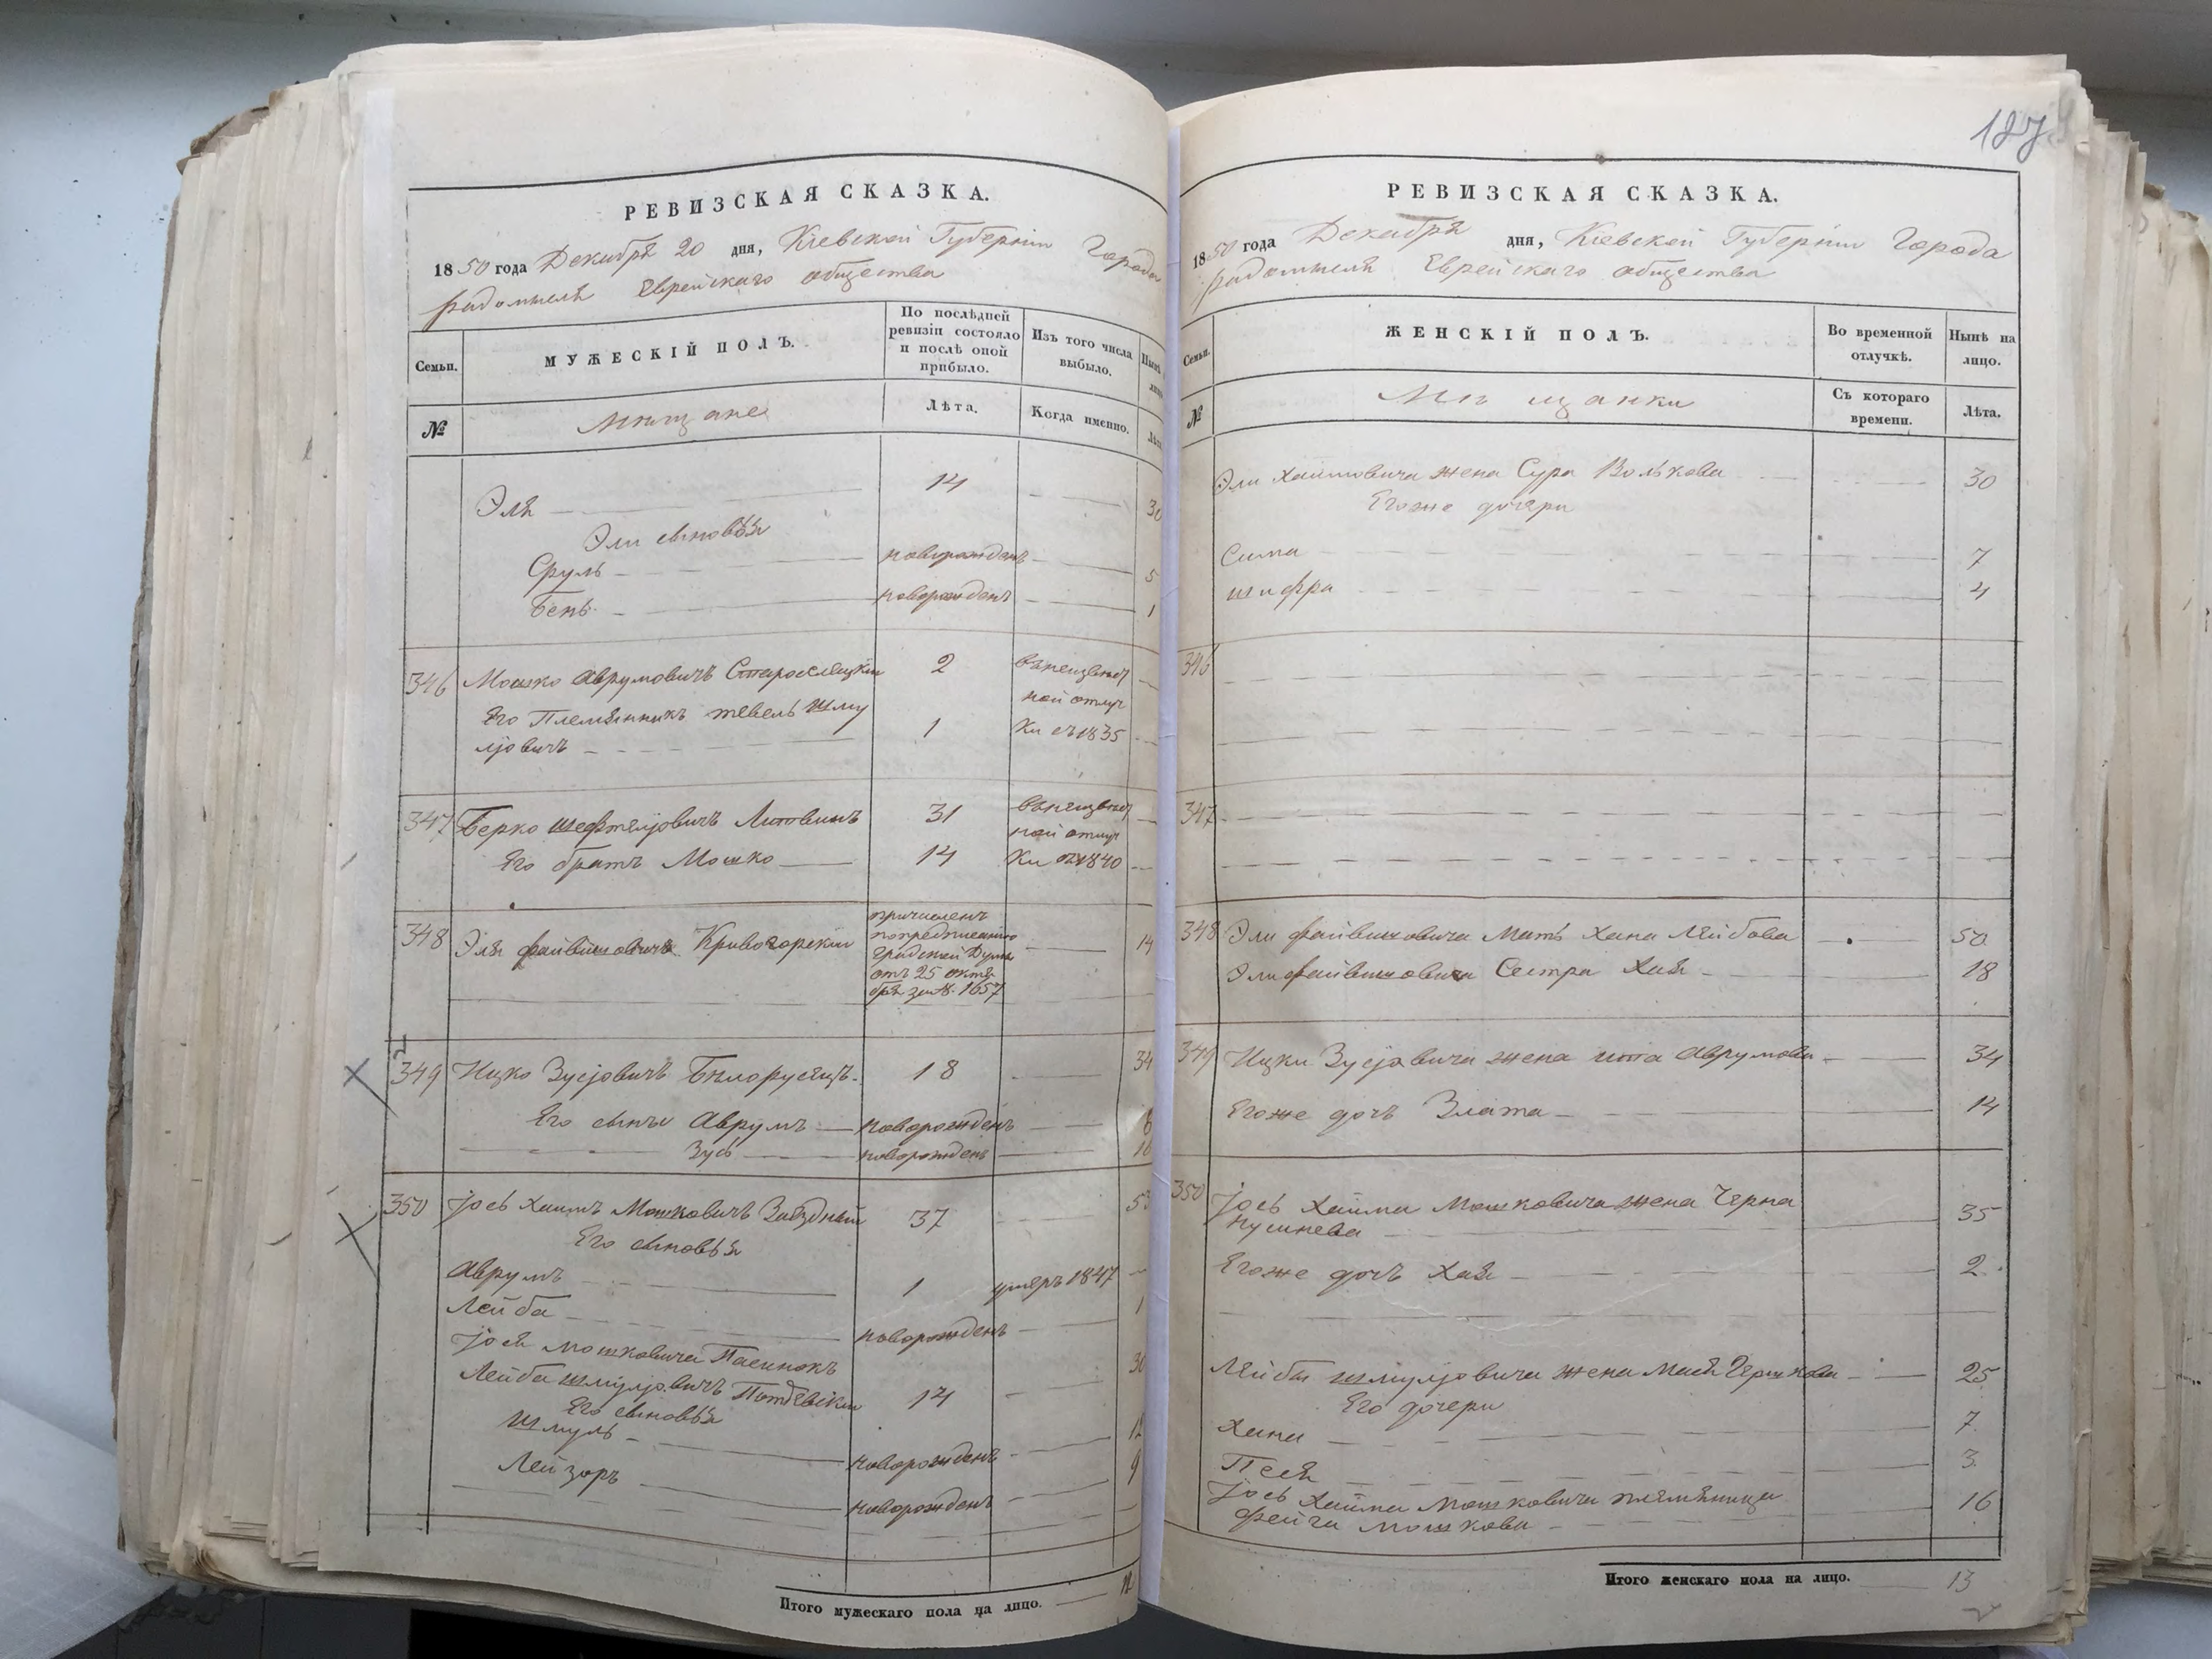 РЕВИЗСКАЯ СКАЗКА.
1850 года Декабря 20 дня, Кіевской Губерніи Города
Радомысля Еврейскаго общества
Семьи.
МУЖЕСКІЙ ПОЛЪ.
По послѣдней
ревизіи состояло
и послѣ оной
прибыло.
Изъ того числа
выбыло.
№
мѣщане
Лѣта.
Когда именно.
Эля 14 30
Эли сыновья
Сруль новорожденъ 5
Бень новорожденъ 1
346 Мошко Аврумовичъ 2 въ неизвѣст
ной отлуч
Его Племянникъ тевель Шму
льовичъ 1 ки съ 1835
347 Берко Шефтельовичъ Литвинъ 31 въ неизвѣст
ной отлуч
Его братъ Мошко 14 ки съ 1840
348 Эля Файвишовичъ Кривогорскій 14
причисленъ
по предписанію
градской Думы
отъ 25 октя
бря за № 1657
349 Ицко Зусьовичъ Бѣлорусецъ 18 34
Его сыны Аврумъ новорожденъ
Зусь новорожденъ
350 Іось Хаимъ Мошковичъ Заѣздный 37 53
Его сыновья
Аврумъ 1 умеръ 1847
Лейба новорожденъ 1
Іося Мошковича Пасинокъ
Лейба Шмульовичъ 14 30
Его сыновья
Шмуль новорожденъ 12
Лейзоръ новорожденъ 9
Итого мужескаго пола на лицо. 12
187
РЕВИЗСКАЯ СКАЗКА.
1850 года Декабря дня, Кіевской Губерніи Города
Радомысля Еврейскаго общества
Семьи.
ЖЕНСКІЙ ПОЛЪ.
Во временной
отлучкѣ.
Нынѣ на
лицо.
№
Мѣщанки
Съ котораго
времени.
Лѣта.
Эли Хаимовича жена Сура Волькова 30
Егоже дочери
Сима 7
Шифра 4
346
347
348 Эли Файвишовича Мать Хана Лейбова 50
Эли Файвишовича Сестра Хая 18
349 Ицки Зусьовича жена Ита Аврумова 34
Егоже дочь Злата 14
350 Іось Хайма Мошковича жена Черна
Нусинева 35
Егоже дочь Хая 2
Лейбы Шмульовича жена Мася Гершкова 25
Его дочери
Хана 7
Песя 3
Іось Хайма Мошковича племяница 16
Фейга Мошкова
Итого женскаго пола на лицо. 13